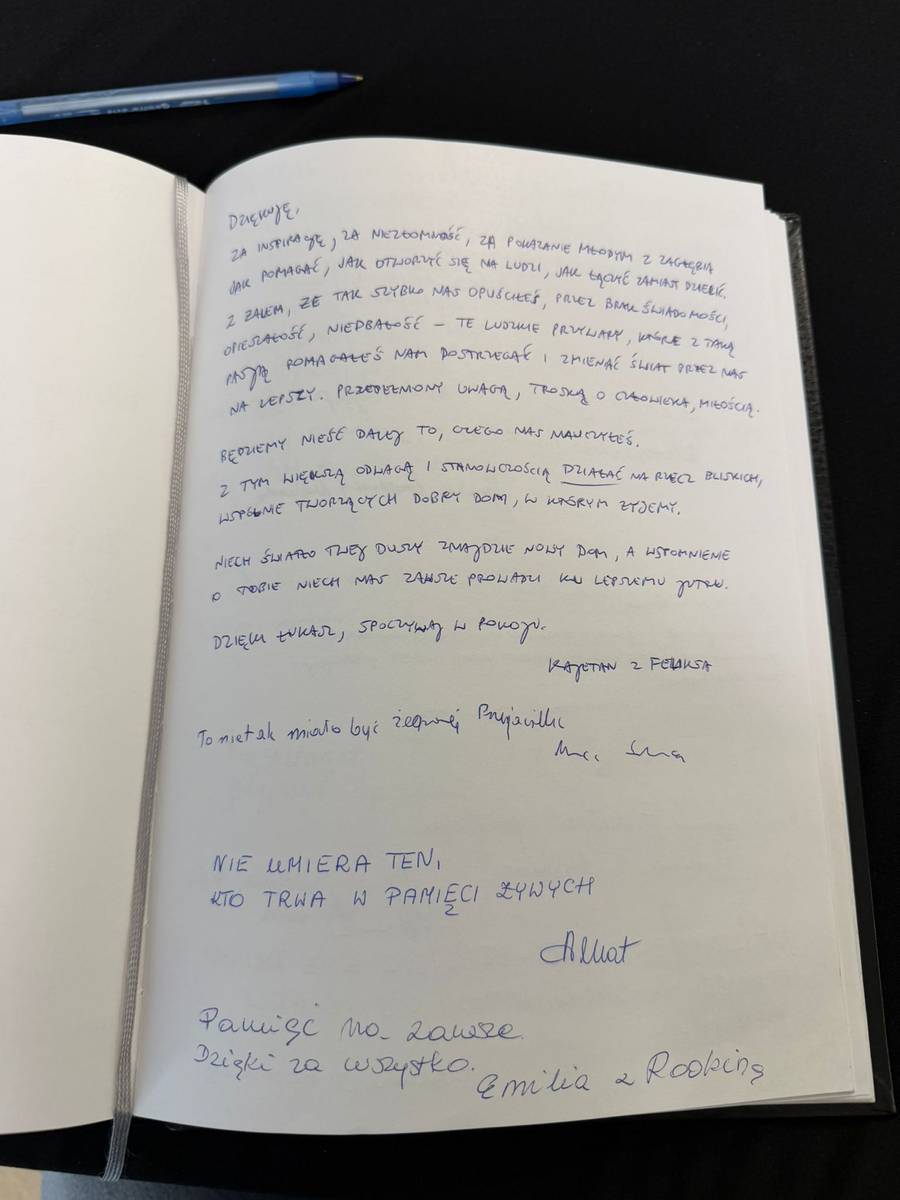 DZIĘKUJĘ,
ZA INSPIRACJĘ, ZA NIEZŁOMNOŚĆ, ZA POKAZANIE MŁODYM Z ZAGŁĘBIA
JAK POMAGAĆ, JAK OTWORZYĆ SIĘ NA LUDZI, JAK ŁĄCZYĆ ZAMIAST DZIELIĆ.
Z ŻALEM, ŻE TAK SZYBKO NAS OPUŚCIŁEŚ, PRZEZ BRAK ŚWIADOMOŚCI,
OPIESZAŁOŚĆ, NIEDBAŁOŚĆ – TE LUDZKIE PRZYWARY, KTÓRE Z TAKĄ
PASJĄ POMAGAŁEŚ NAM DOSTRZEGAĆ I ZMIENIAĆ ŚWIAT PRZEZ NAS
NA LEPSZY. PRZEPEŁNIONY UWAGĄ, TROSKĄ O CZŁOWIEKA, MIŁOŚCIĄ.
BĘDZIEMY NIEŚĆ DALEJ TO, CZEGO NAS NAUCZYŁEŚ.
Z TYM WIĘKSZĄ ODWAGĄ I STANOWCZOŚCIĄ DZIAŁAĆ NA RZECZ BLISKICH,
WSPÓLNIE TWORZĄCYCH DOBRY DOM, W KTÓRYM ŻYJEMY.
NIECH ŚWIATŁO TWEJ DUSZY ZNAJDZIE NOWY DOM, A WSPOMNIENIE
O TOBIE NIECH NAS ZAWSZE PROWADZI KU LEPSZEMU JUTRU.
DZIĘKI ŁUKASZ, SPOCZYWAJ W POKOJU.
KAJETAN Z FELIKSA
To nie tak miało być żegnaj Przyjacielu
NIE UMIERA TEN,
KTO TRWA W PAMIĘCI ŻYWYCH
Pamięć na zawsze.
Dzięki za wszystko.
Emilia z Rodziną